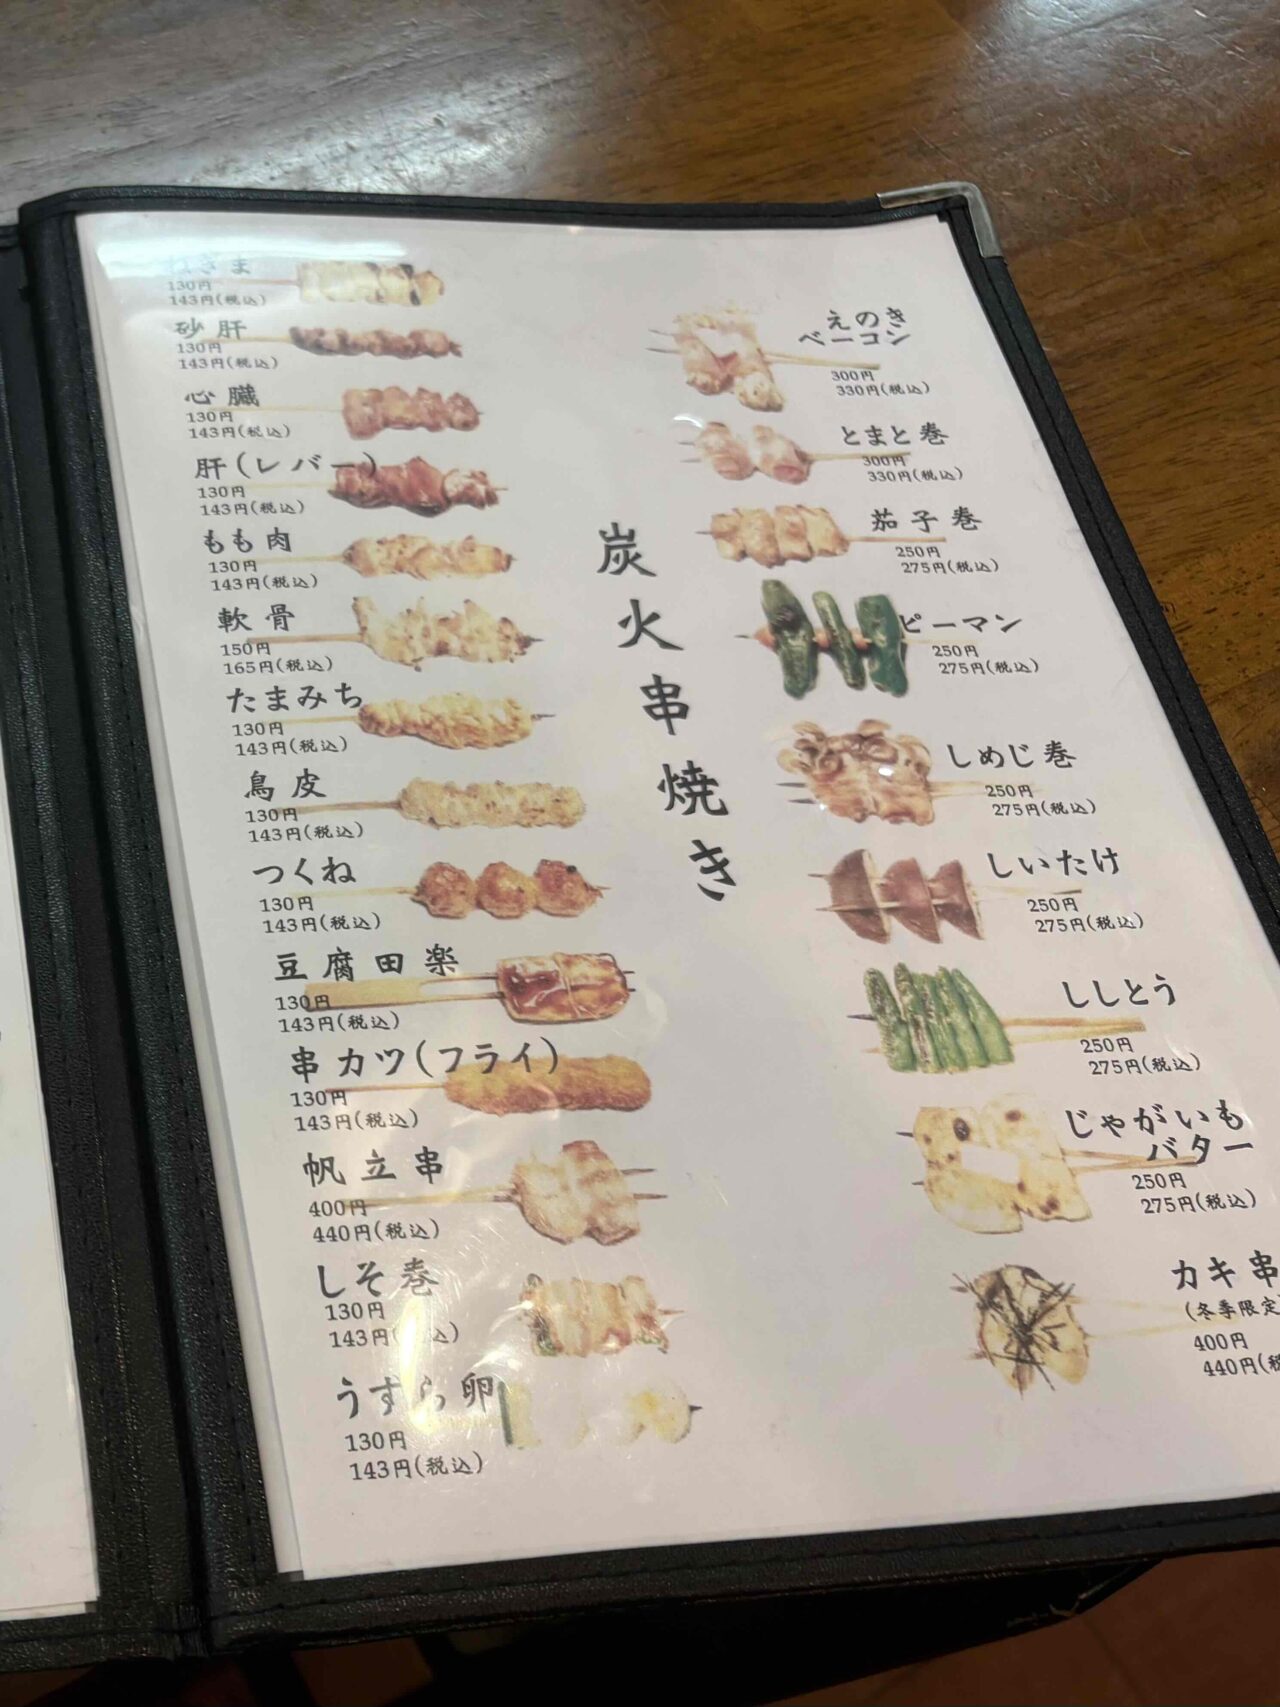 ねぎま
130円
143円(税込)
砂肝
130円
143円(税込)
心臓
130円
143円(税込)
肝(レバー)
130円
143円(税込)
もも肉
130円
143円(税込)
軟骨
150円
165円(税込)
たまみち
130円
143円(税込)
鳥皮
130円
143円(税込)
つくね
130円
143円(税込)
豆腐田楽
130円
143円(税込)
串カツ(フライ)
130円
143円(税込)
帆立串
400円
440円(税込)
しそ巻
130円
143円(税込)
うずら卵
130円
143円(税込)
炭火串焼き
えのき
ベーコン
300円
330円(税込)
とまと巻
300円
330円(税込)
茄子巻
250円
275円(税込)
ピーマン
250円
275円(税込)
しめじ巻
250円
275円(税込)
しいたけ
250円
275円(税込)
ししとう
250円
275円(税込)
じゃがいも
バター
250円
275円(税込)
カキ串
(冬季限定)
400円
440円(税